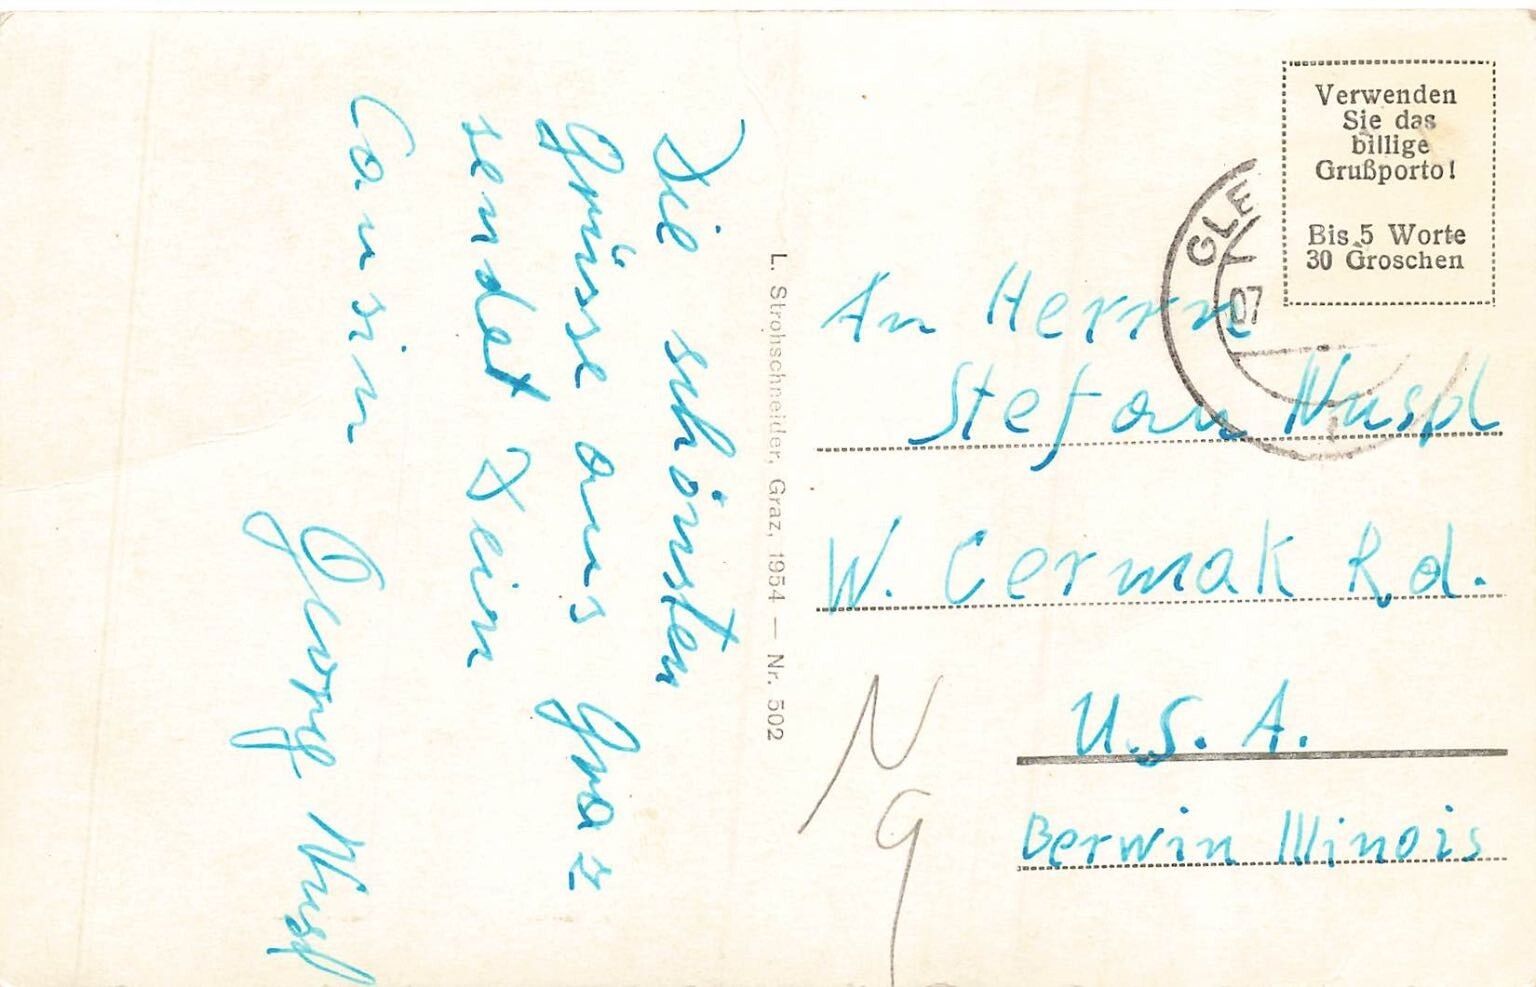 Die schönsten
Grüsse aus Graz
sendet Dein
Cousin
Georg Nuspl
L. Strohschneider, Graz, 1954 — Nr. 502
Verwenden
Sie das
billige
Grußporto!
Bis 5 Worte
30 Groschen
GLE
07
An Herrn
Stefan Nuspl
W. Cermak Rd.
U.S.A.
Berwin Illinois
N
G